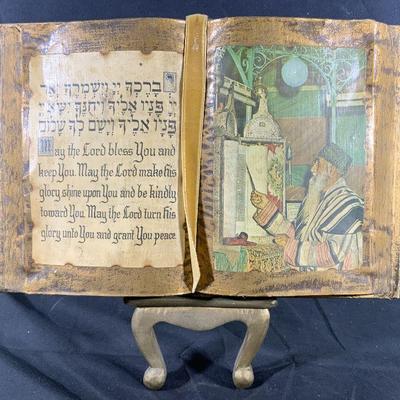 יְבָרֶכְךָ יְיָ וְיִשְׁמְרֶךָ יָאֵר
יְיָ פָּנָיו אֵלֶיךָ וִיחֻנֶּךָּ יִשָּׂא יְיָ
פָּנָיו אֵלֶיךָ וְיָשֵׂם לְךָ שָׁלוֹם
May the Lord bless You and
keep You. May the Lord make His
glory shine upon You and be kindly
toward You. May the Lord turn His
glory unto You and grant You peace.